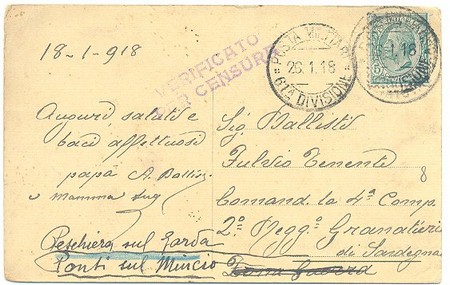 18-1-918
VERIFICATO
PER CENSURA
POSTA MILITARE
26.1.18
61A DIVISIONE
1.18
DIVISIONE
Auguri saluti e
baci affettuosi
papà A. Ballis
e mamma
Sig. Ballisti
Fulvio Tenente
8
Comando la 4ª Comp.
2º Regg.º Granatieri
di Sardegna
Zona Guerra
Peschiera sul Garda
Ponti sul Mincio